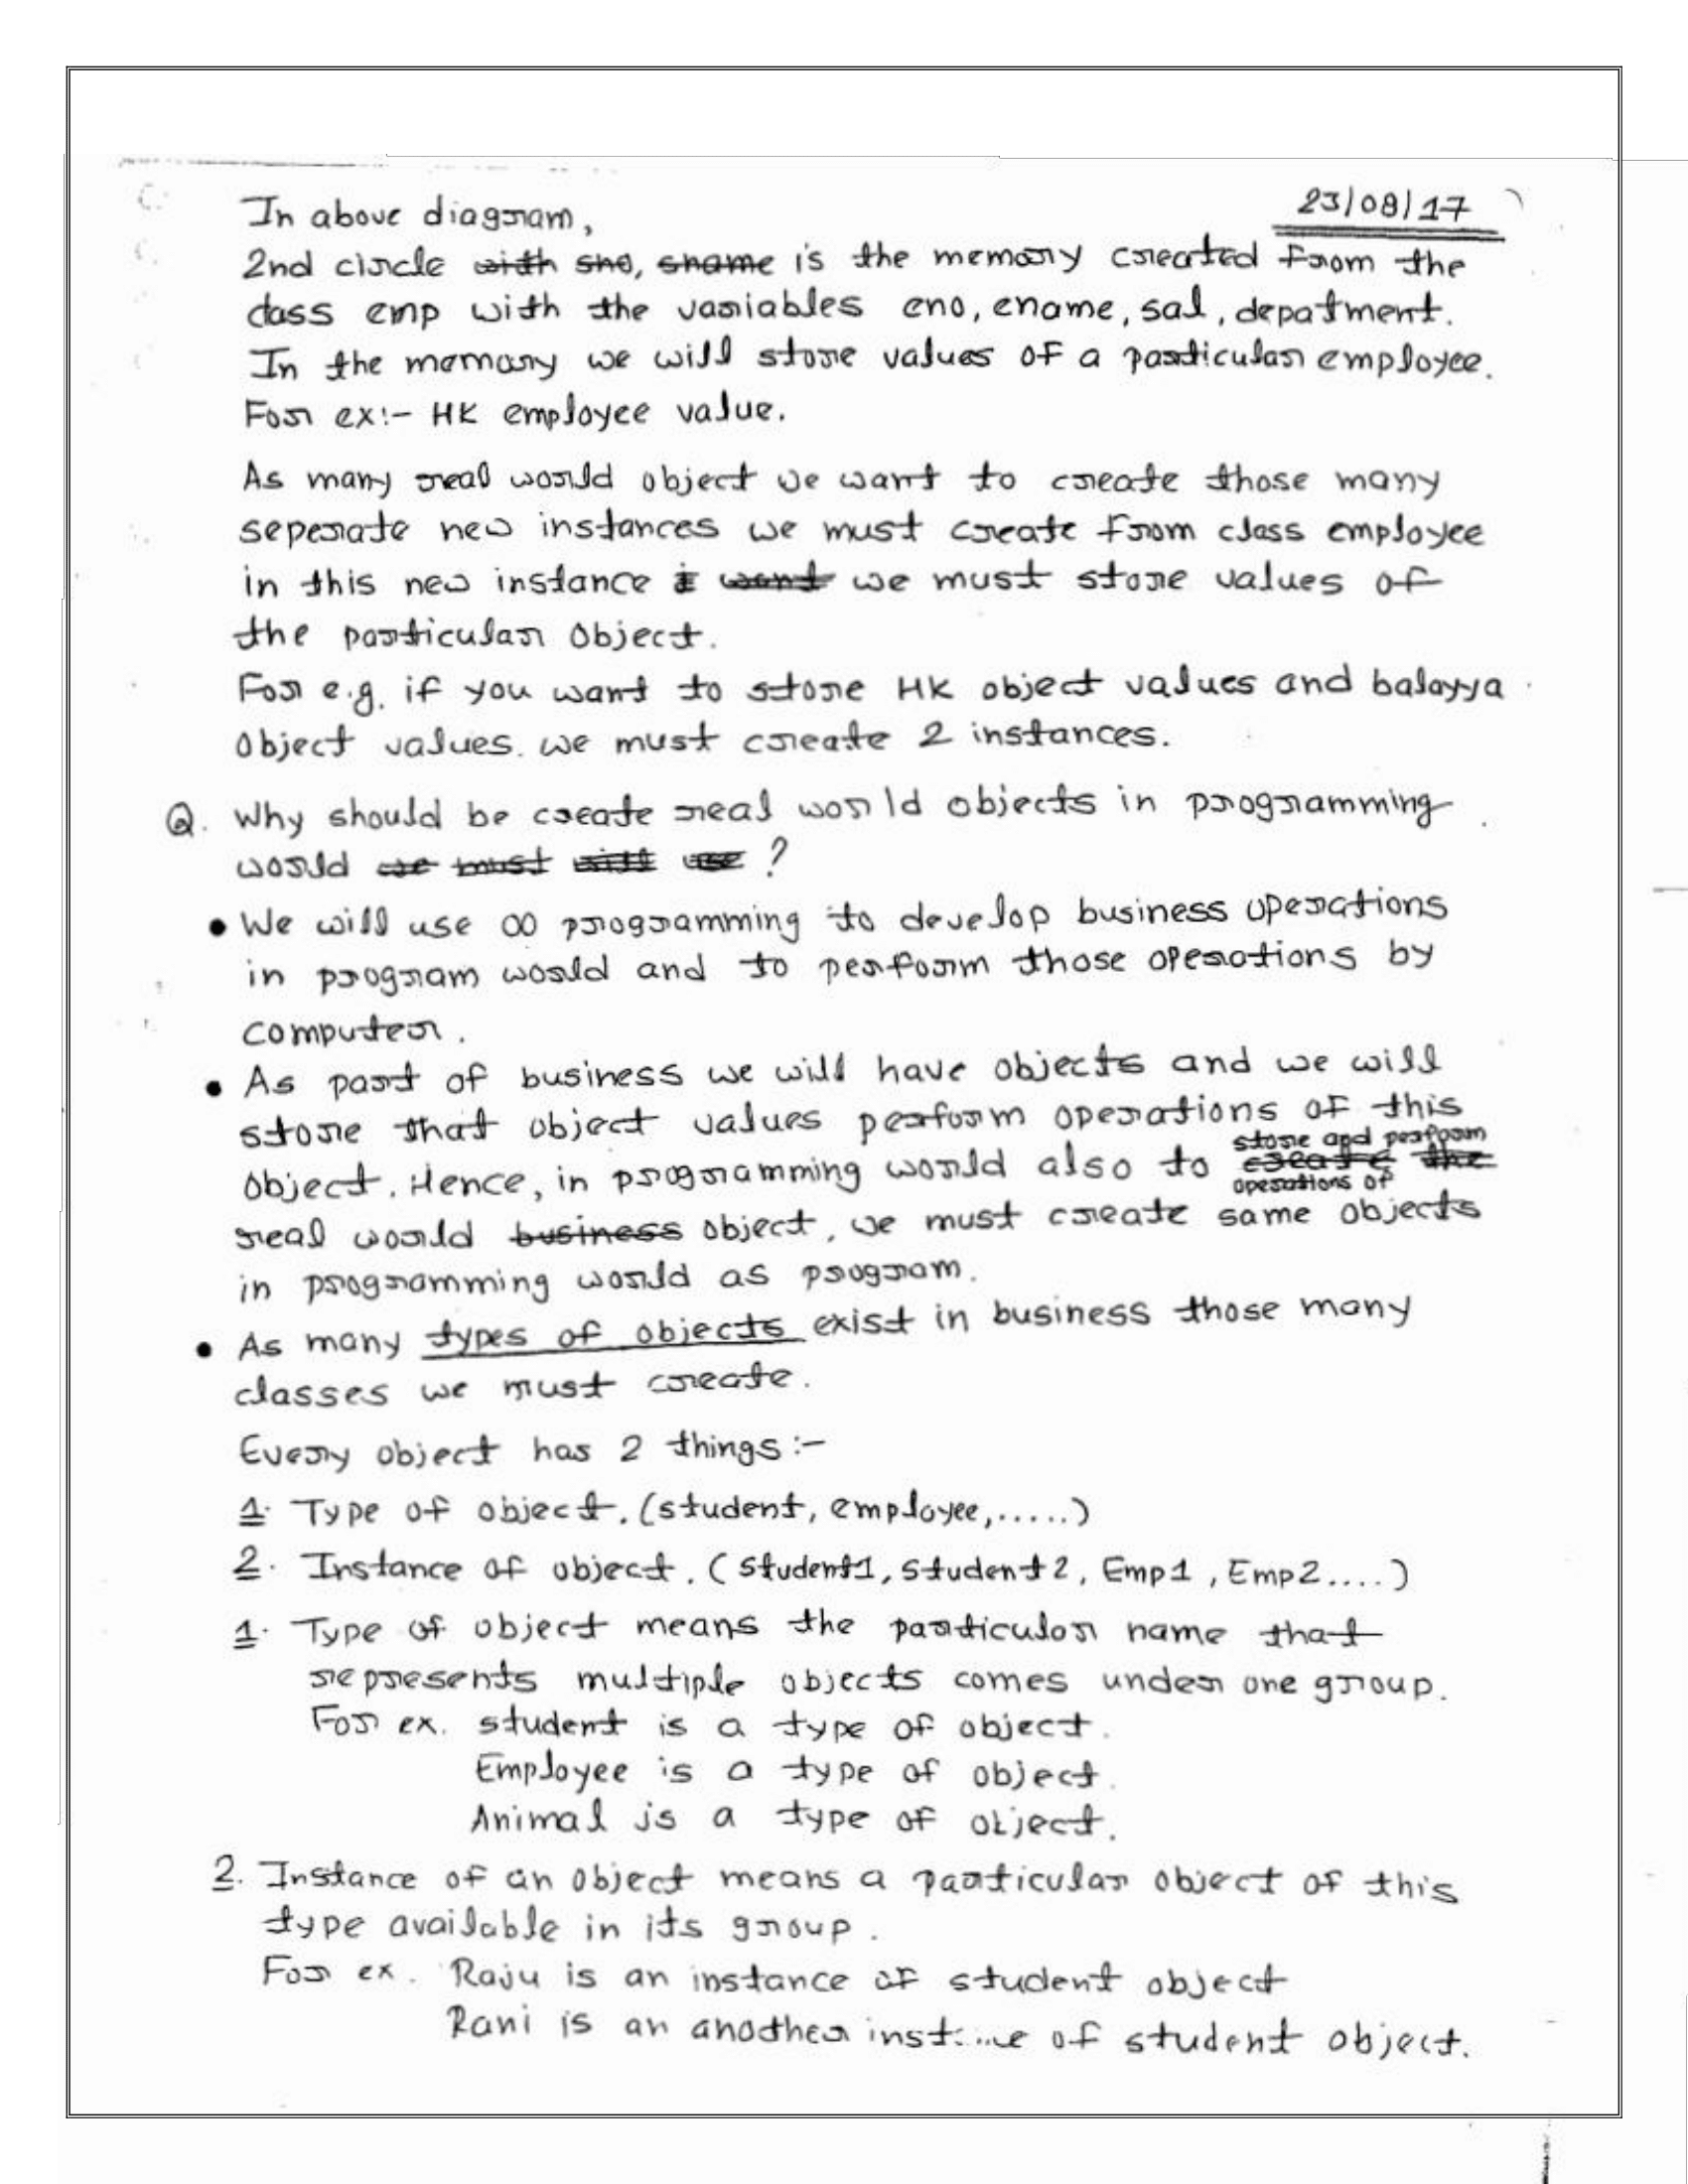 23/08/17
In above diagram,
2nd circle with sno, sname is the memory created from the
class emp with the variables eno, ename, sal, depatment.
In the memory we will store values of a particular employee.
For ex:- HK employee value.
As many real world object we want to create those many
seperate new instances we must create from class employee
in this new instance i want we must store values of
the particular Object.
For e.g. if you want to store HK object values and balayya
Object values. we must create 2 instances.
Q. Why should be create real world objects in programming
world we must will use ?
• We will use OO programming to develop business operations
in program world and to perform those operations by
computer.
• As part of business we will have objects and we will
store that object values perform operations of this
store and perform
Object. Hence, in programming world also to create the
operations of
real world business object, we must create same objects
in programming world as program.
• As many types of objects exist in business those many
classes we must create.
Every object has 2 things:-
1. Type of object. (student, employee,.....)
2. Instance of object. (Student1, Student2, Emp1, Emp2....)
1. Type of object means the particular name that
represents multiple objects comes under one group.
For ex. student is a type of object.
Employee is a type of object.
Animal is a type of object.
2. Instance of an Object means a particular object of this
type available in its group.
For ex. Raju is an instance of student object
Rani is an another inst...e of student object.